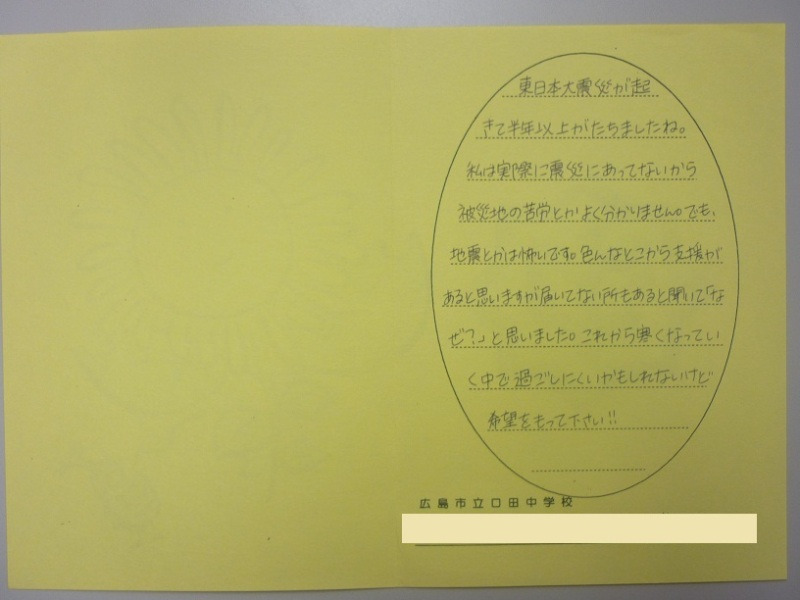 東日本大震災が起
きて半年以上がたちましたね。
私は実際に震災にあってないから
被災地の苦労とかよく分かりません。でも、
地震とかは怖いです。色んなとこから支援が
あると思いますが届いてない所もあると聞いて「な
ぜ？」と思いました。これから寒くなってい
く中で過ごしにくいかもしれないけど
希望をもって下さい!!
広島市立口田中学校